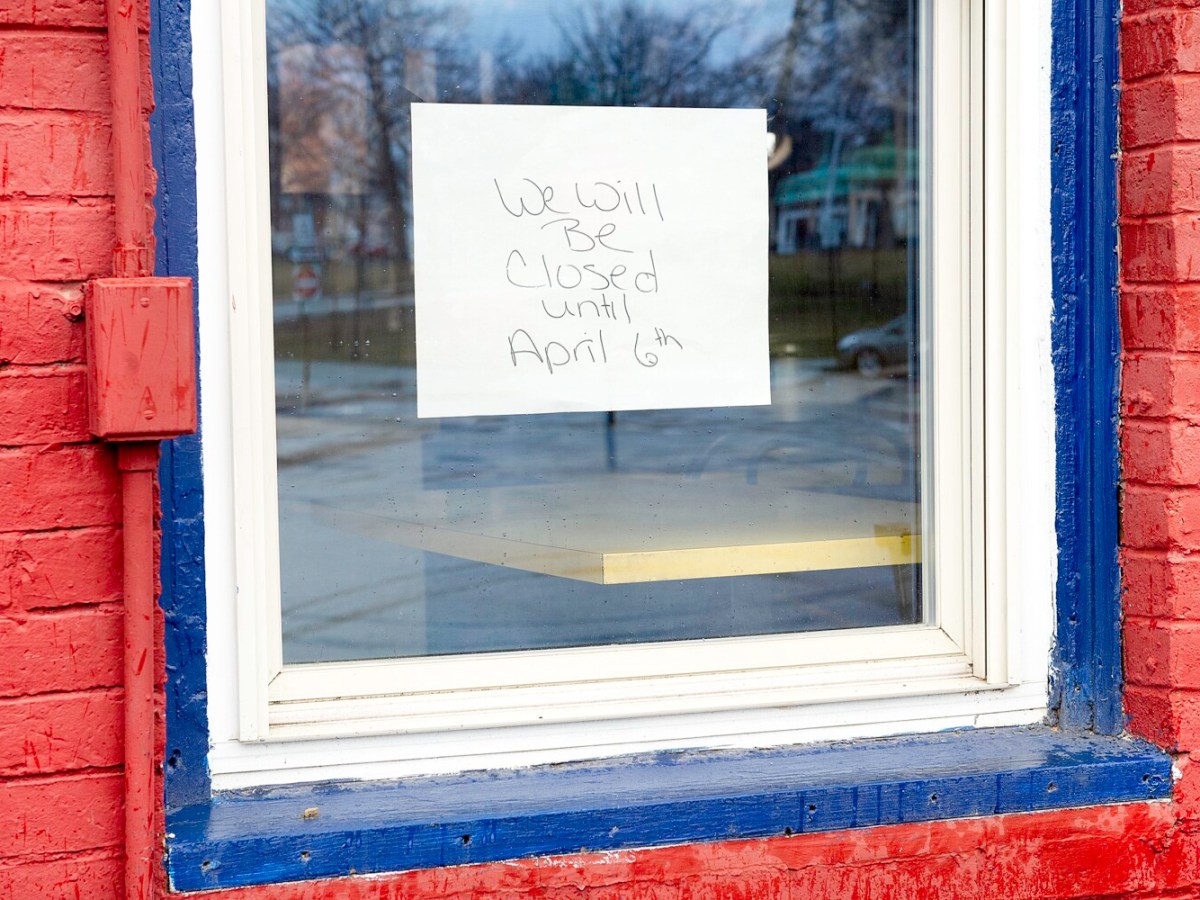 We Will
Be
Closed
until
April 6th